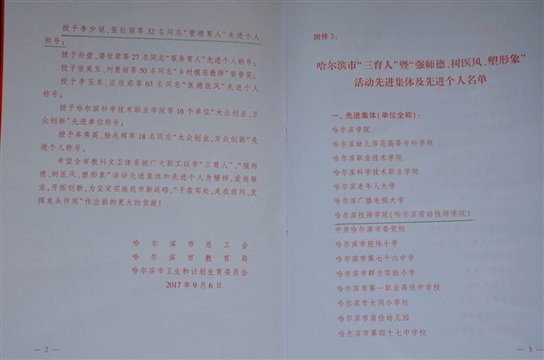 授予李少锐、张红丽等32名同志“管理育人”先进个人
称号；
授予孙莹、潘世君等27名同志“服务育人”先进个人称号；
授予张美玉、刘慧丽等50名同志“乡村模范教师”荣誉奖；
授予李玉东、汪欣茹等63名同志“医德医风”先进个人
称号；
授予哈尔滨科学技术职业学院等16个单位“大众创业、万
众创新”先进单位称号；
授予车秀英、杨兆辉等18名同志“大众创业、万众创新”先
进个人称号。
希望全市教科文卫体系统广大职工以市“三育人”、“强师
德、树医风、塑形象”活动先进集体和先进个人为榜样，爱岗敬
业，开拓创新，为坚定实施我市新战略，“干在实处、走在前列、发
挥龙头作用”作出新的更大的贡献！
哈尔滨市总工会
哈尔滨市教育局
哈尔滨市卫生和计划生育委员会
2017年9月6日
— 2 —
附件2：
哈尔滨市“三育人”暨“强师德、树医风、塑形象”
活动先进集体及先进个人名单
一、先进集体（单位全称）：
哈尔滨学院
哈尔滨幼儿师范高等专科学校
哈尔滨职业技术学院
哈尔滨科学技术职业学院
哈尔滨老年人大学
哈尔滨广播电视大学
哈尔滨技师学院（哈尔滨劳动技师学院）
中共哈尔滨市委党校
哈尔滨市经纬小学
哈尔滨市第七十六中学
哈尔滨市群力实验小学
哈尔滨市第一职业高级中学校
哈尔滨市大同小学校
哈尔滨市崇俭幼儿园
哈尔滨市第四十七中学校
— 3